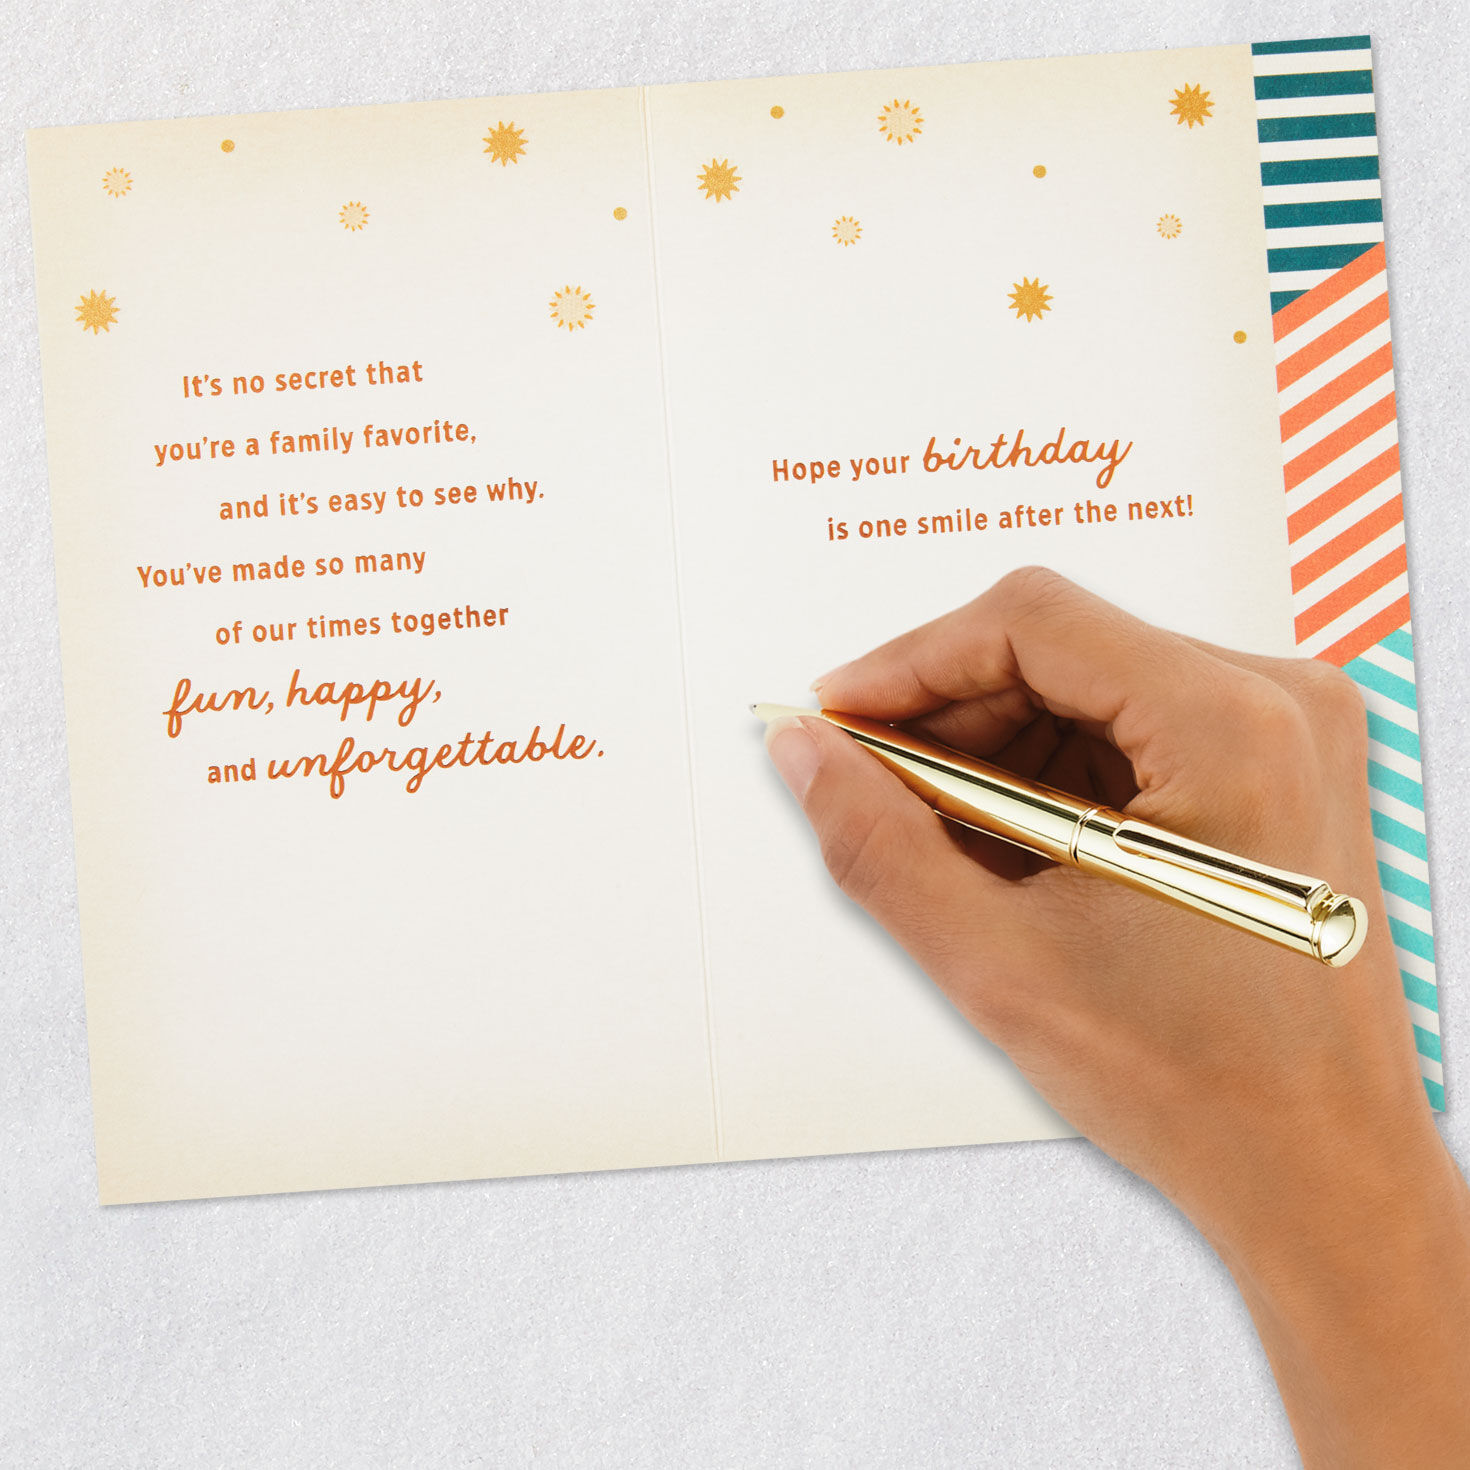 It's no secret that
you're a family favorite,
and it's easy to see why.
You've made so many
of our times together
fun, happy,
and unforgettable.
Hope your birthday
is one smile after the next!